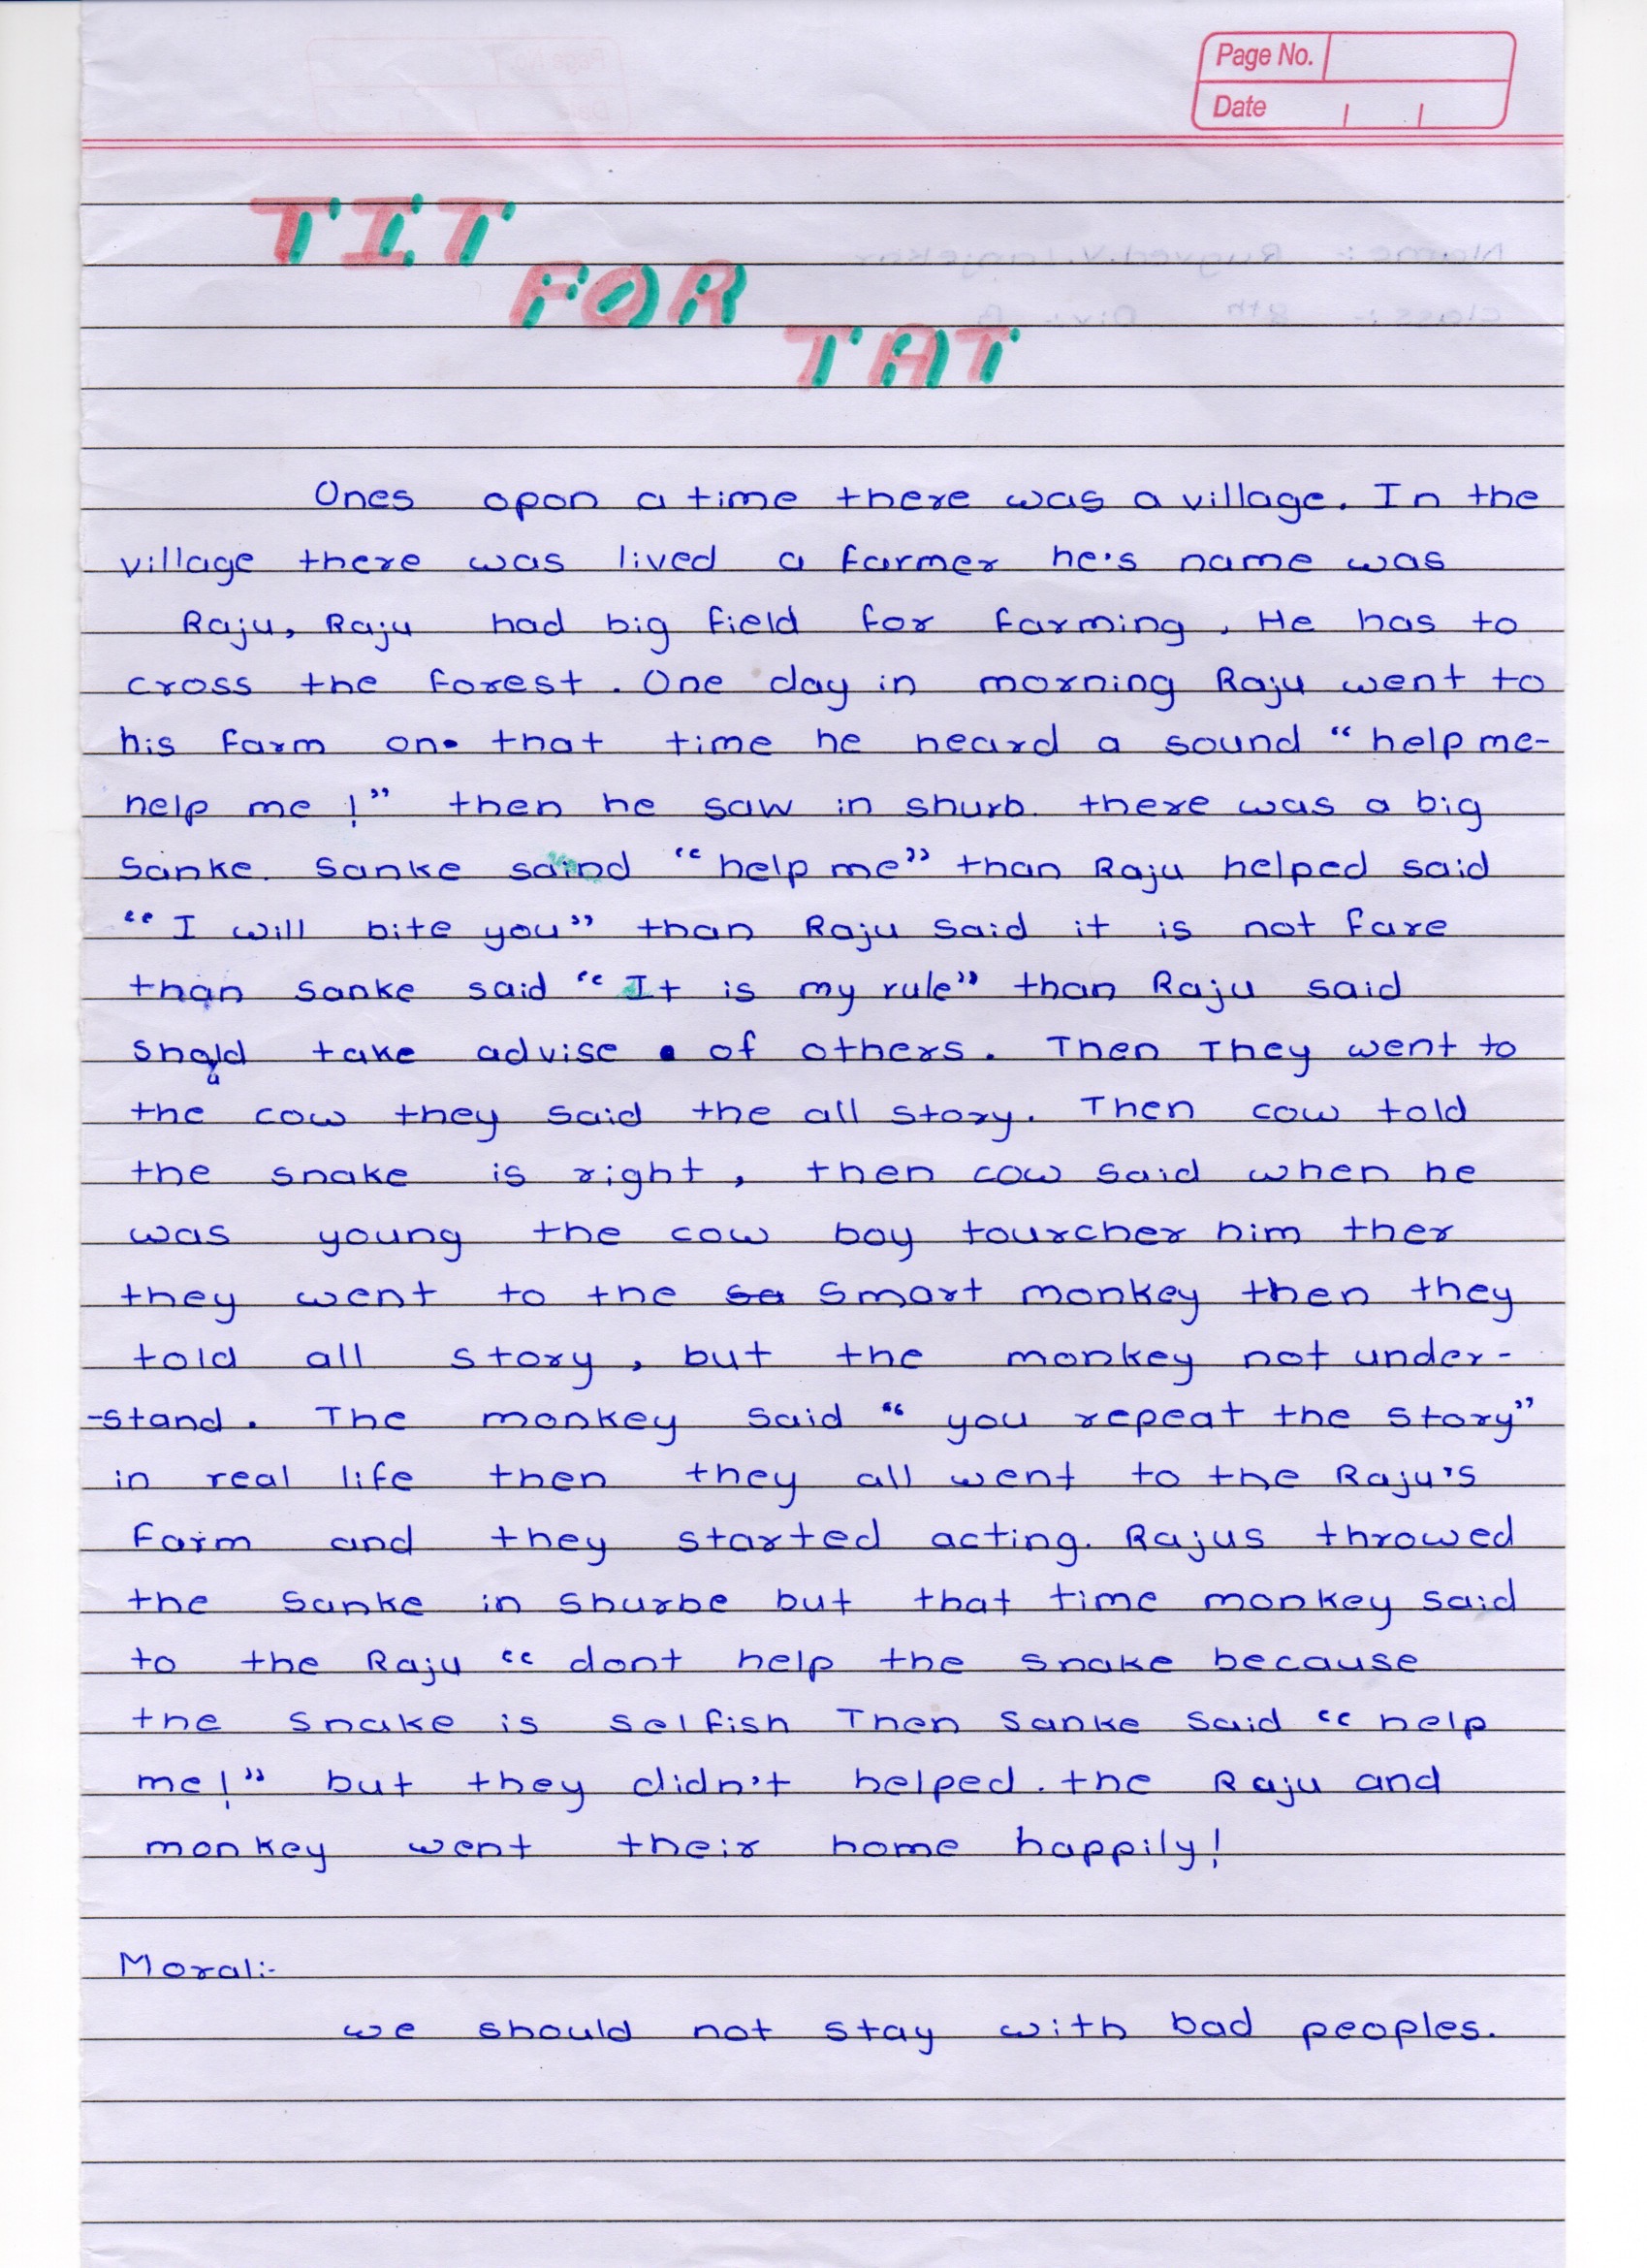 Page No.
Date
TIT
FOR
TAT
Ones opon a time there was a village. In the
village there was lived a farmer he's name was
Raju, Raju had big field for farming. He has to
cross the forest. One day in morning Raju went to
his farm on that time he heard a sound "help me-
help me!" then he saw in shurb. there was a big
Sanke. Sanke said "help me" than Raju helped said
"I will bite you" than Raju said it is not fare
than sanke said "It is my rule" than Raju said
should take advise of others. Then They went to
the cow they said the all story. Then cow told
the snake is right, then cow said when he
was young the cow boy tourcher him ther
they went to the smart monkey then they
told all story, but the monkey not under-
-stand. The monkey said "you repeat the story"
in real life then they all went to the Raju's
farm and they started acting. Rajus throwed
the sanke in shurbe but that time monkey said
to the Raju "dont help the snake because
the snake is selfish Then Sanke said "help
me!" but they didn't helped. the Raju and
monkey went their home happily!
Moral:-
we should not stay with bad peoples.